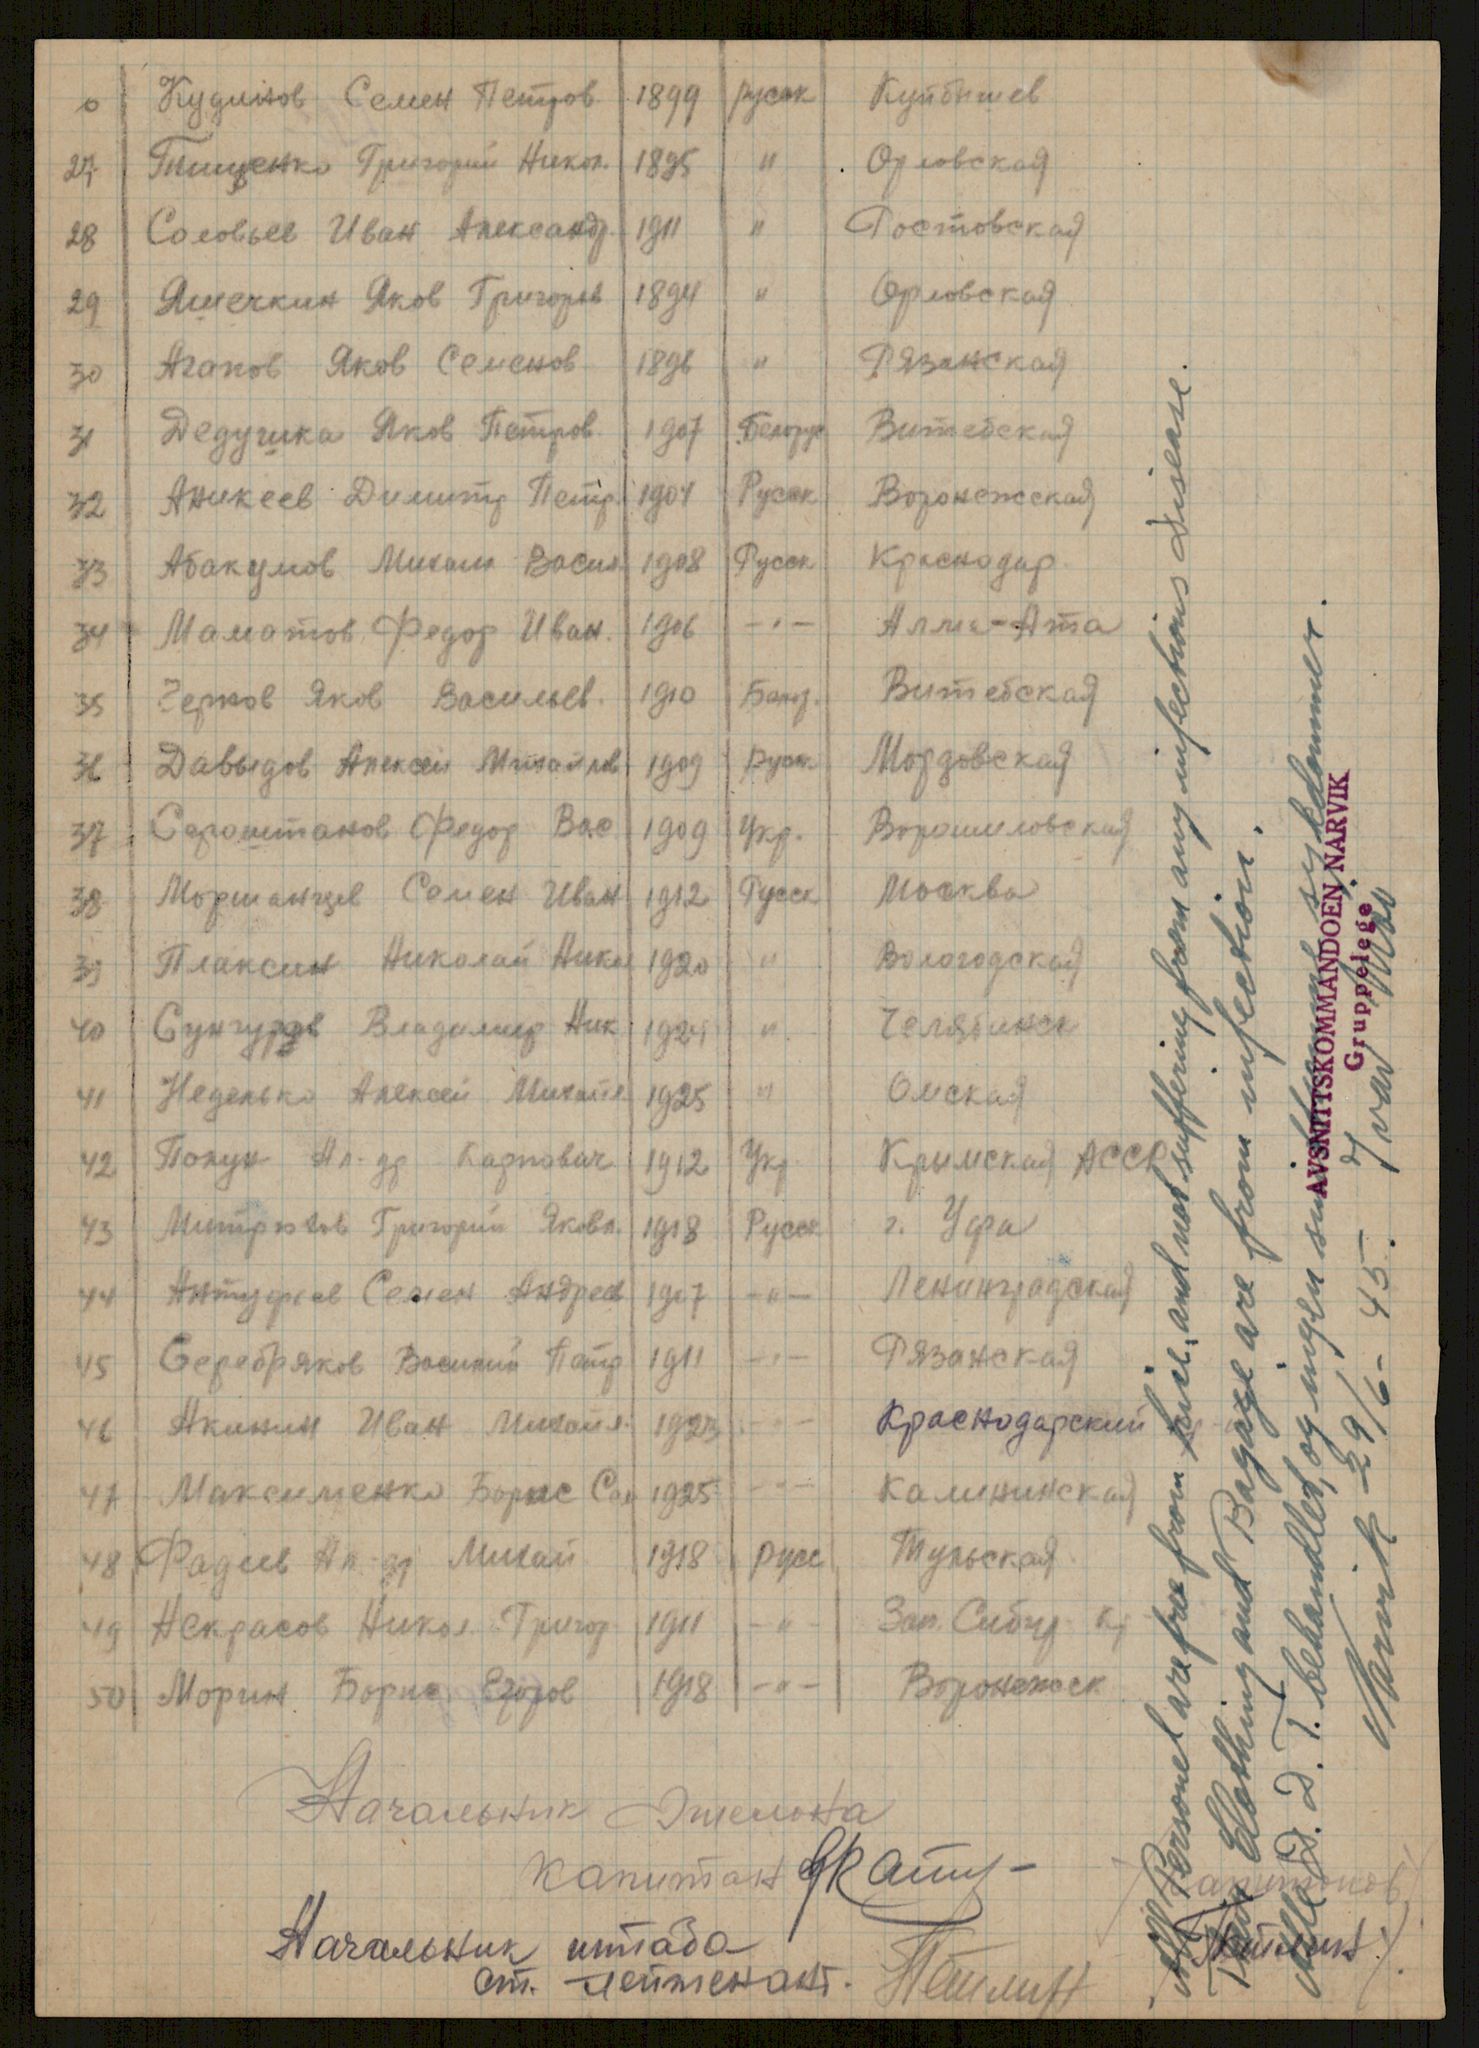 Кудинов Семен Петров 1899 русск Куйбышев
27 Тищенко Григорий Никол. 1895 " Орловская
28 Соловьев Иван Александр. 1911 " Ростовская
29 Ямечкин Яков Григорев 1894 " Орловская
30 Агапов Яков Семенов 1896 " Рязанская
31 Дедушка Яков Петров 1907 Белорус Витебская
32 Аникеев Димитр Петр. 1904 Русск Воронежская
33 Абакумов Михаил Васил 1908 Русск Краснодар.
34 Маматов Федор Иван. 1906 -"- Алма-Ата
35 Чернов Яков Васильев. 1910 Белор. Витебская
36 Давыдов Алексей Михайлов 1909 русск Мордовская
37 Сероштанов Федор Вас 1909 Укр. Ворошиловская
38 Моршанцев Семен Иван 1912 Русск Москва
39 Плаксин Николай Никол 1920 " Вологодская
40 Сунгуров Владимир Ник 1924 " Челябинск
41 Неделько Алексей Михайл 1925 " Омская
42 Ал-др Карпович 1912 Укр Крымская АССР
43 Митрюков Григорий Яковл. 1918 Русск г. Уфа
44 Антуфьев Семен Андреев 1907 -"- Ленинградская
45 Серебряков Василий Петр 1911 -"- Рязанская
46 Акинин Иван Михайл. 1923 -"- Краснодарский
47 Максименко Борис 1925 -"- Калининская
48 Фадеев Ал-др Михай 1918 русс Тульская
49 Некрасов Никол. Григор 1911 -"- Зап. Сибир. кр
50 Морин Борис Егоров 1918 -"- Воронежск
Начальник эшелона
капитан
/Капитонов/
Начальник штаба
ст. лейтенант.
All Personel are free from lice, and not suffering from any infectious disease.
Their Clothing and Bagage are from infection.
Alle D. D. T. behandlet, og ingen smittsomme sykdommer.
Narvik 29/6-45.
AVSNITTSKOMMANDOEN NARVIK
Gruppelege
Ivar